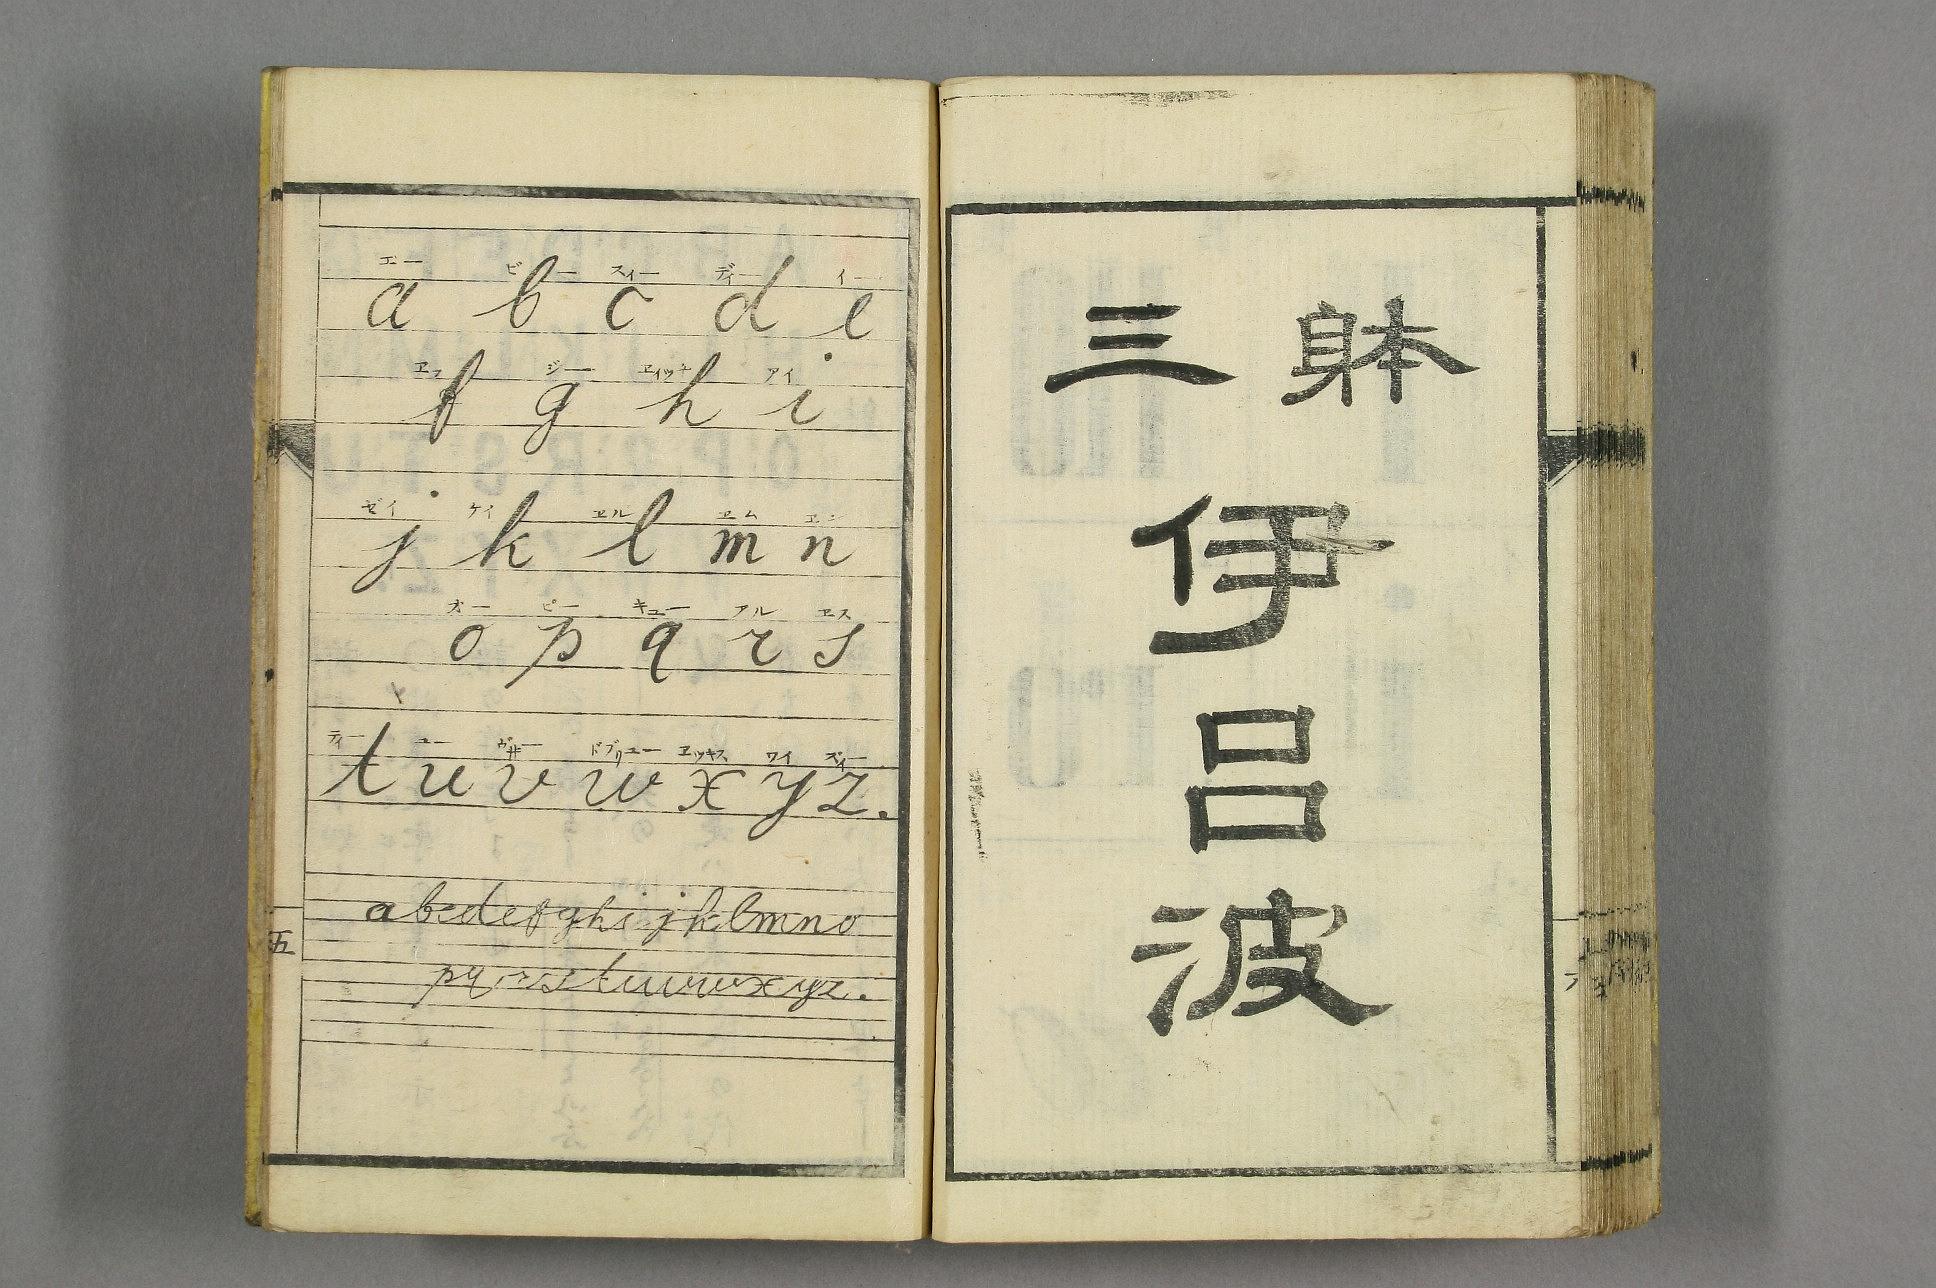 エー ビー スィー ディー イー
a b c d e
ヱフ ジー ヱイッチ アイ
f g h i
ゼイ ケイ ヱル ヱム ヱン
j k l m n
オー ピー キュー アル ヱス
o p q r s
ティー ユー ヴヰー ドブリユー ヱッキス ワイ ズィー
t u v w x y z.
abcdefghijklmno
pqrstuvwxyz.
五
三躰
伊
呂
波